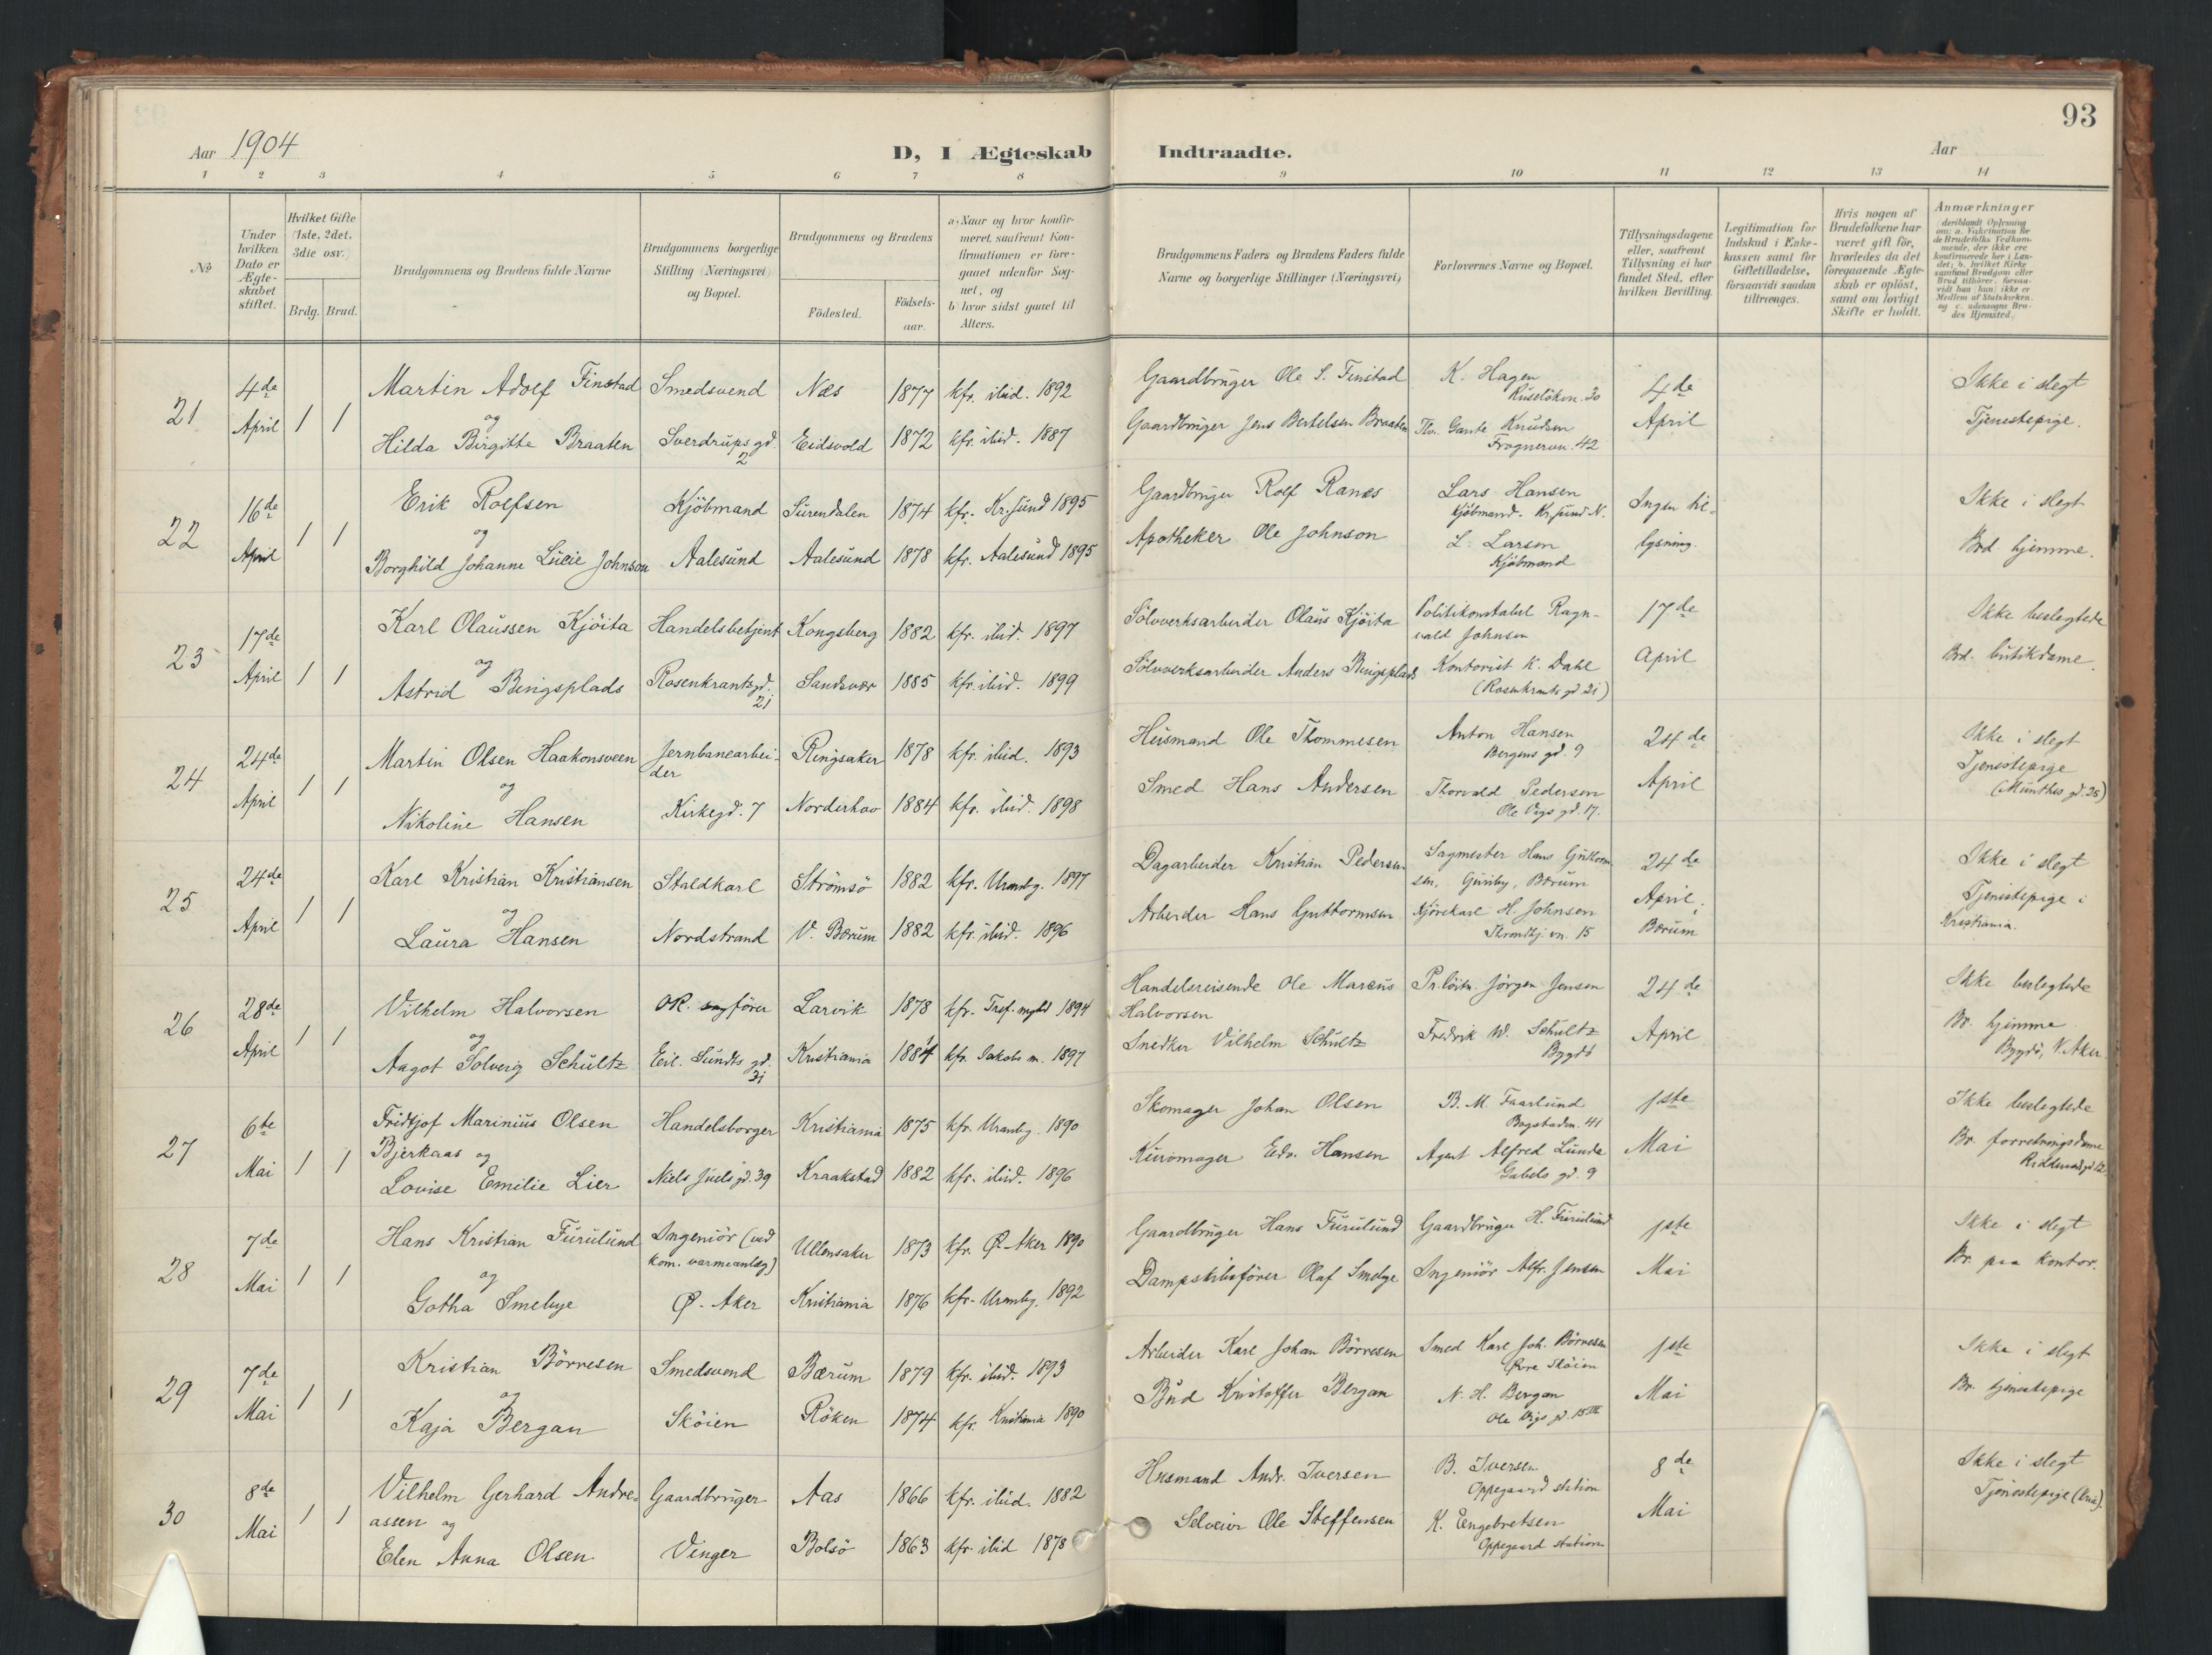 93
Aar 1904
D, I Ægteskab Indtraadte.
Aar
1 2 3 4 5 6 7 8 9 10 11 12 13 14
No
Under hvilken Dato er Ægteskabet stiftet.
Hvilket Gifte (1ste, 2det, 3die osv.)
Brdg. Brud.
Brudgommens og Brudens fulde Navne
Brudgommens borgerlige Stilling (Næringsvei) og Bopæl.
Brudgommens og Brudens
Födested.
Födsels-aar.
a) Naar og hvor konfir-
meret, saafremt Kon-
firmationen er fore-
gaaet udenfor Sog-
net, og
b) hvor sidst gaaet til
Alters.
Brudgommens Faders og Brudens Faders fulde
Navne og borgerlige Stillinger (Næringsvei)
Forlovernes Navne og Bopæl.
Tillysningsdagene
eller, saafremt
Tillysning ei har
fundet Sted, efter
hvilken Bevilling.
Legitimation for
Indskud i Enke-
kassen samt for
Giftetilladelse,
forsaavidt saadan
tiltrænges.
Hvis nogen af
Brudefolkene har
været gift för,
hvorledes da det
foregaaende Ægte-
skab er oplöst,
samt om lovligt
Skifte er holdt.
Anmærkninger
(deriblandt Oplysning
om: a. Vakcination for
de Brudefolks Vedkom-
mende, der ikke ere
konfirmerede her i Lan-
det; b. hvilket Kirke-
samfund Brudgom eller
Brud tilhörer, forsaa-
vidt han (hun) ikke er
Medlem af Statskirken.
og c. udensogns Bru-
des Hjemsted.)
21 4de April 1 1
Martin Adolf Finstad Smedsvend Næs 1877 kfr. ibid. 1892
og
Hilda Birgitte Braaten Sverdrups gd. 2 Eidsvold 1872 kfr. ibid. 1887
Gaardbruger Ole S. Finstad K. Hagen Ruselökvn. 30 4de April Ikke i slegt
Gaardbruger Jens Bertelsen Braaten Knudsen Frognervn. 42 Tjenestepige.
22 16de April 1 1
Erik Rolfsen Kjöbmand Surendalen 1874 kfr. Kr.sund 1895
og
Borghild Johanne Lucie Johnson Aalesund Aalesund 1878 kfr. Aalesund 1895
Gaardbruger Rolf Ranes Lars Hansen Kjöbmand. Kr.sund N. Ingen til- Ikke i slegt
Apotheker Ole Johnson L. Larsen Kjöbmand lysning. Brd hjemme.
23 17de April 1 1
Karl Olaussen Kjöita Handelsbetjent Kongsberg 1882 kfr. ibid. 1897
og
Astrid Bingsplads Rosenkrantzgd. 21 Sandsvær 1885 kfr. ibid. 1899
Sölvverksarbeider Olaus Kjöita Politikonstabel Ragn- 17de Ikke beslegtede
vald Johnsen
Sölvverksarbeider Anders Bingsplads Kontorist K. Dahl April Brd. butikdame.
(Rosenkrants gd. 21)
24 24de April 1 1
Martin Olsen Haakonsveen Jernbanearbei- Ringsaker 1878 kfr. ibid. 1893
der
og
Nikoline Hansen Kirkegd. 7 Norderhov 1884 kfr. ibid. 1898
Husmand Ole Thommesen Anton Hansen Bergens gd. 9 24de Ikke i slegt
Tjenestepige
Smed Hans Andersen Thorvald Pedersen April (Munthes gd. 28)
Ole Vigs gd. 17.
25 24de April 1 1
Karl Kristian Kristiansen Staldkarl Strömsö 1882 kfr. Uranbg. 1897
og
Laura Hansen Nordstrand V. Bærum 1882 kfr. ibid. 1896
Dagarbeider Kristian Pedersen Sagmester Hans Guttorm- 24de Ikke i slegt
sen, Bærum
Arbeider Hans Guttormsen Kjörekarl H. Johnsen April i Tjenestepige i
Trondhj. vn. 15 Bærum Kristiania.
26 28de April 1 1
Vilhelm Halvorsen förer Larvik 1878 kfr. Tref. mghd 1894
og
Aagot Solveig Schultz Eil. Sundts gd. 31 Kristiania 1884 kfr. Jakobs m. 1897
Handelsreisende Ole Marcus Pr.löitn. Jörgen Jensen 24de Ikke beslegtede
Halvorsen Br. hjemme
Snedker Vilhelm Schultz Fredrik W. Schultz April Bygdö, V. Aker
Bygdö
27 6te Mai 1 1
Fridtjof Marinius Olsen Handelsborger Kristiania 1875 kfr. Uranbg. 1890
Bjerkaas og
Lovise Emilie Lier Niels Juels gd. 39 Kraakstad 1882 kfr. ibid. 1896
Skomager Johan Olsen B. M. Faarlund 1ste Ikke beslegtede
Bogstadvn. 41
Kuromager Edv. Hansen Agent Alfred Lunde Mai Br. forretningsdame
Gabels gd. 9
28 7de Mai 1 1
Hans Kristian Furulund Ingeniör (ved Ullensaker 1873 kfr. Ø. Aker 1890
kom. varmeanlæg)
og
Gotha Smebye Ø. Aker Kristiania 1876 kfr. Uranbg. 1892
Gaardbruger Hans Furulund Gaardbruger H. Furulund 1ste Ikke i slegt
Dampskibsförer Olaf Smebye Ingeniör Alfr. Jensen Mai Br. paa kontor.
29 7de Mai 1 1
Kristian Börresen Smedsvend Bærum 1879 kfr. ibid. 1893
og
Kaja Bergan Sköien Röken 1874 kfr. Kristiania 1890
Arbeider Karl Johan Börresen Smed Karl Joh. Börresen 1ste Ikke i slegt
Övre Sköien
Bud Kristoffer Bergan N. H. Bergan Mai Br. tjenestepige
Ole Vigs gd. 15 III
30 8de Mai 1 1
Vilhelm Gerhard Andre- Gaardbruger Aas 1866 kfr. ibid. 1882
assen og
Elen Anna Olsen Vinger Bolsö 1863 kfr. ibid 1878
Husmand Andr. Iversen B. Iversen 8de Ikke i slegt
Oppegaard station
Selveier Ole Steffensen K. Engebretsen Mai Tjenestepige (Kria).
Oppegaard station